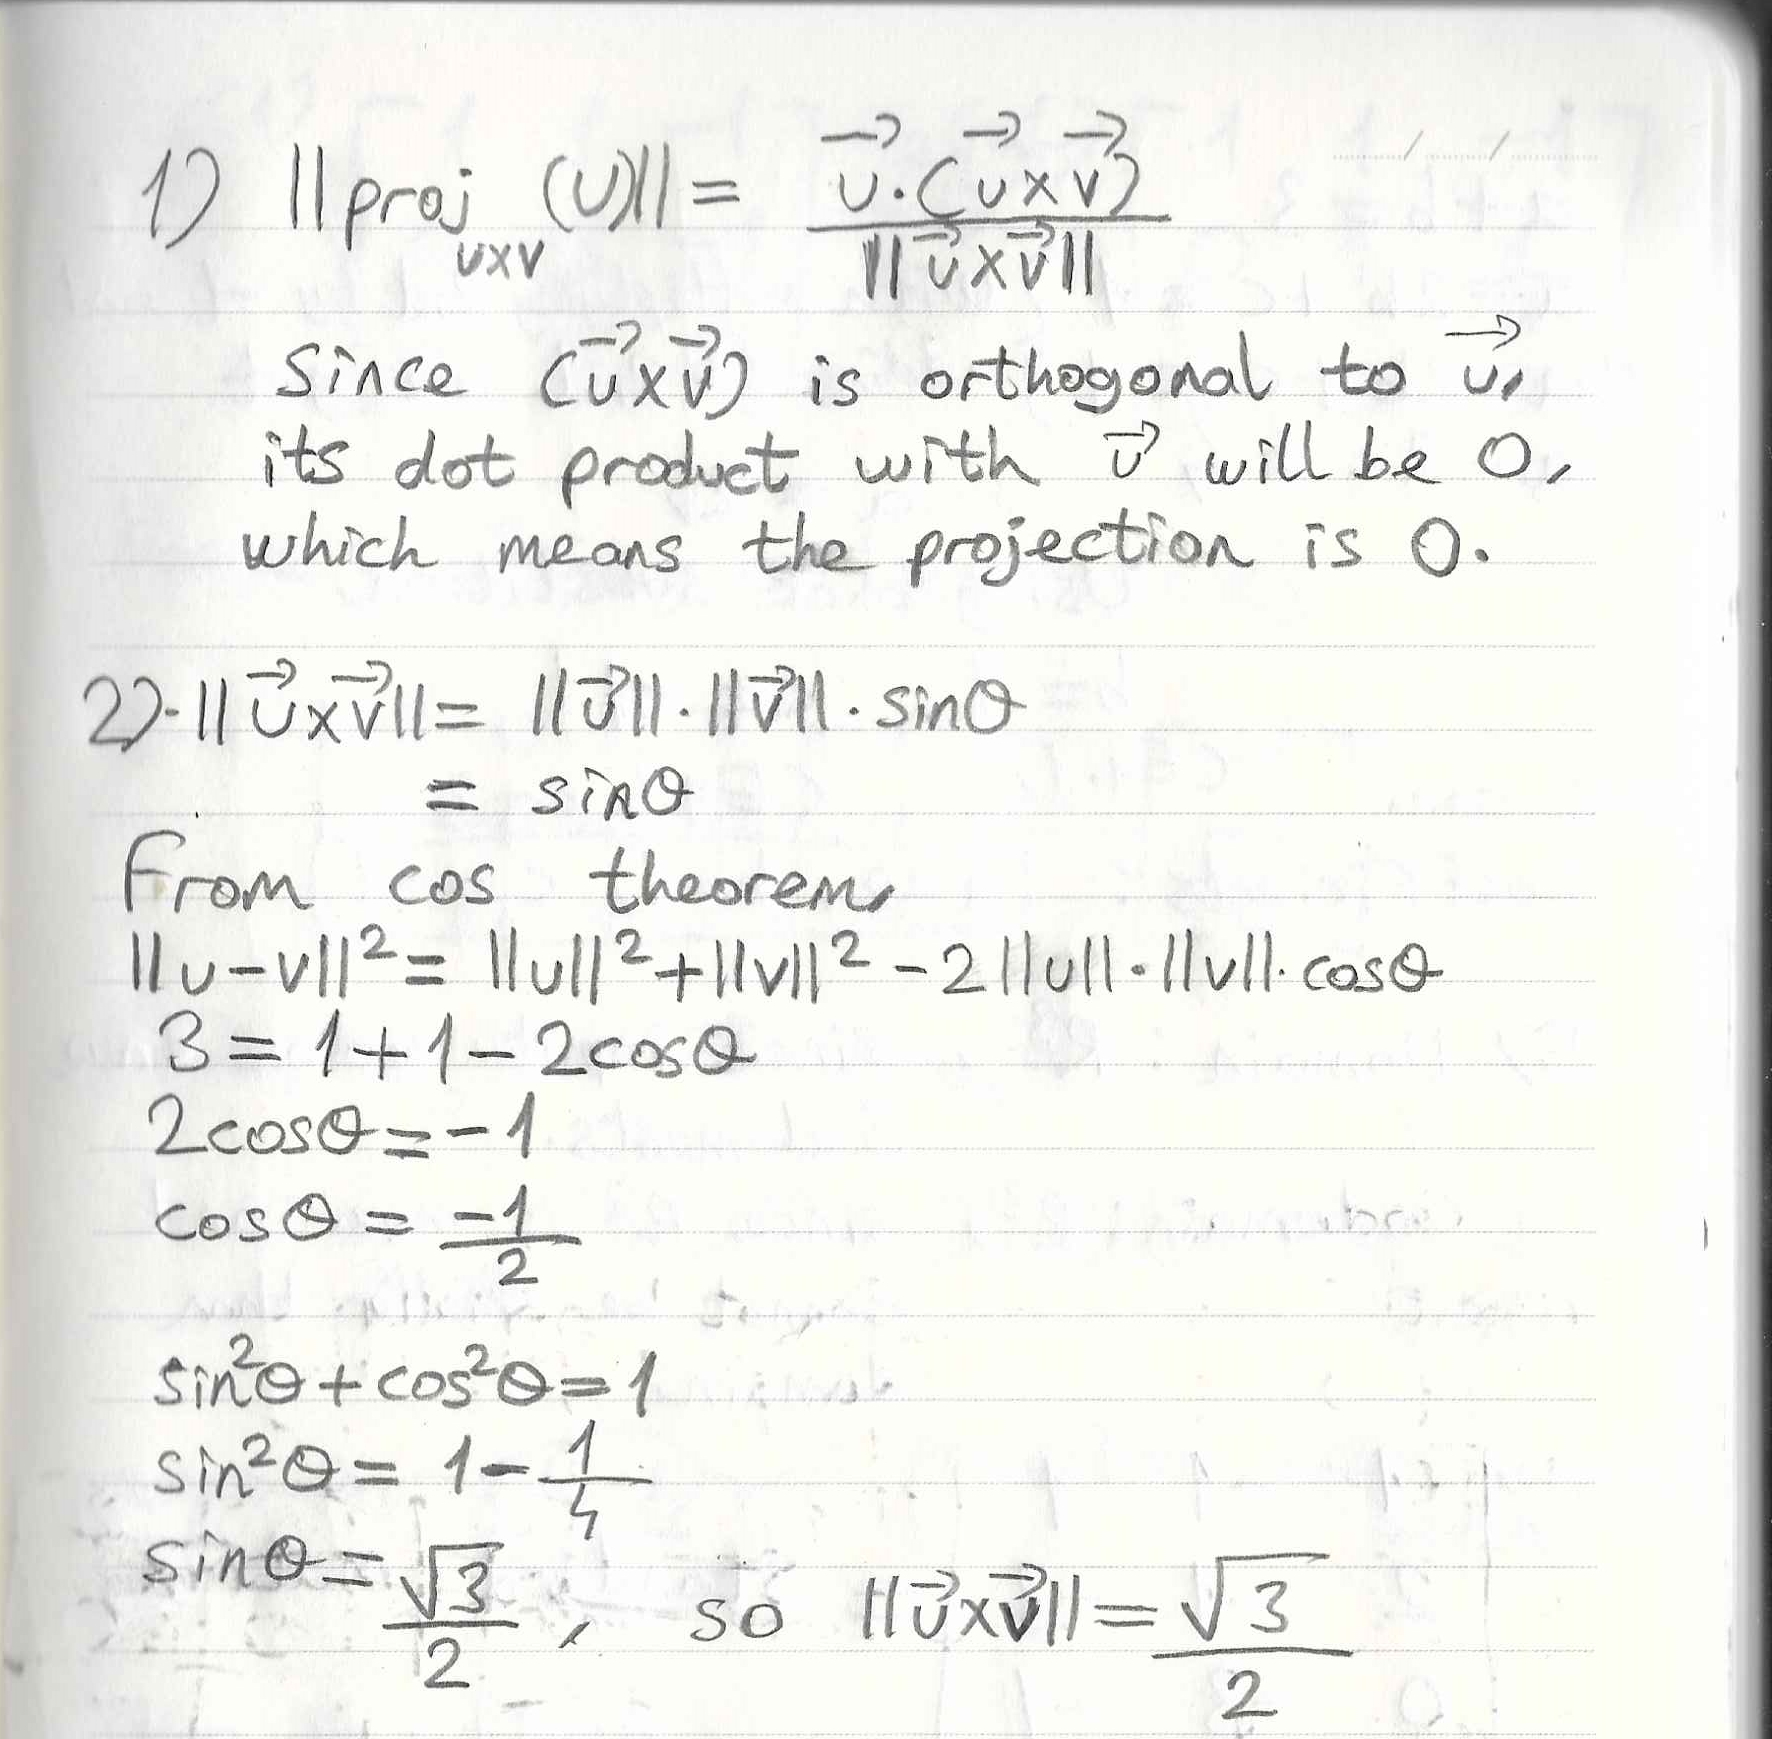 1) ||proj_{u×v} (u)|| = \frac{\vec{u}·(\vec{u}×\vec{v})}{||\vec{u}×\vec{v}||}
Since (\vec{u}×\vec{v}) is orthogonal to \vec{u},
its dot product with \vec{u} will be 0,
which means the projection is 0.
2)·||\vec{u}×\vec{v}|| = ||\vec{u}||·||\vec{v}||·sinθ
= sinθ
From cos theorem,
||u-v||² = ||u||² + ||v||² - 2||u||·||v||·cosθ
3 = 1+1-2cosθ
2cosθ = -1
cosθ = \frac{-1}{2}
sin²θ + cos²θ = 1
sin²θ = 1 - \frac{1}{4}
sinθ = \frac{√3}{2}, so ||\vec{u}×\vec{v}|| = \frac{√3}{2}